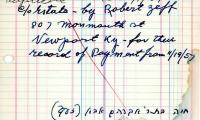 c/o Estate - by Robert Zeff
907 Monmouth st
Newport Ky - for their
record of Payment from 9/19/57
חיה בת ר' אברהם אבא